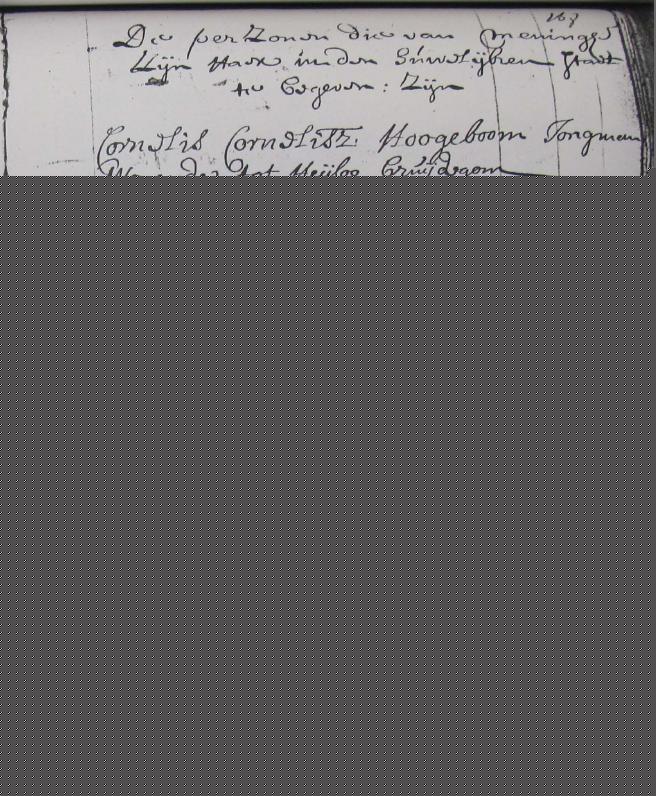 163
Die perzonen die van meninge
Zijn Haer in den Húwelijken staat
te begeven: Zijn
Cornelis Cornelisz Hoogeboom Jongman
tot Heijloo Bruijdegom